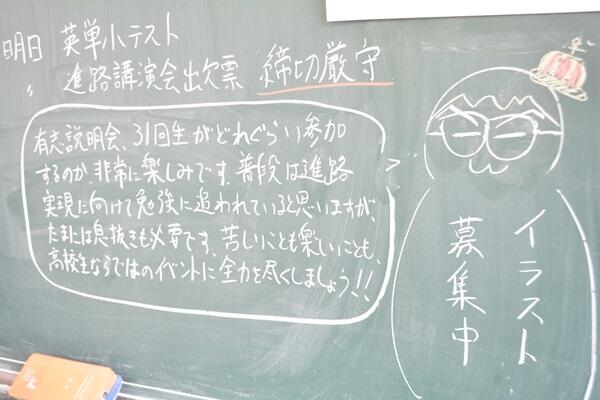 明日 英単小テスト
〃 進路講演会出欠票 締切厳守
有志説明会、31回生がどれぐらい参加
するのか、非常に楽しみです。普段は進路
実現に向けて勉強に追われていると思いますが、
たまには息抜きも必要です。苦しいことも楽しいことも、
高校生ならではのイベントに全力を尽くしましょう!!
イラスト
募集中